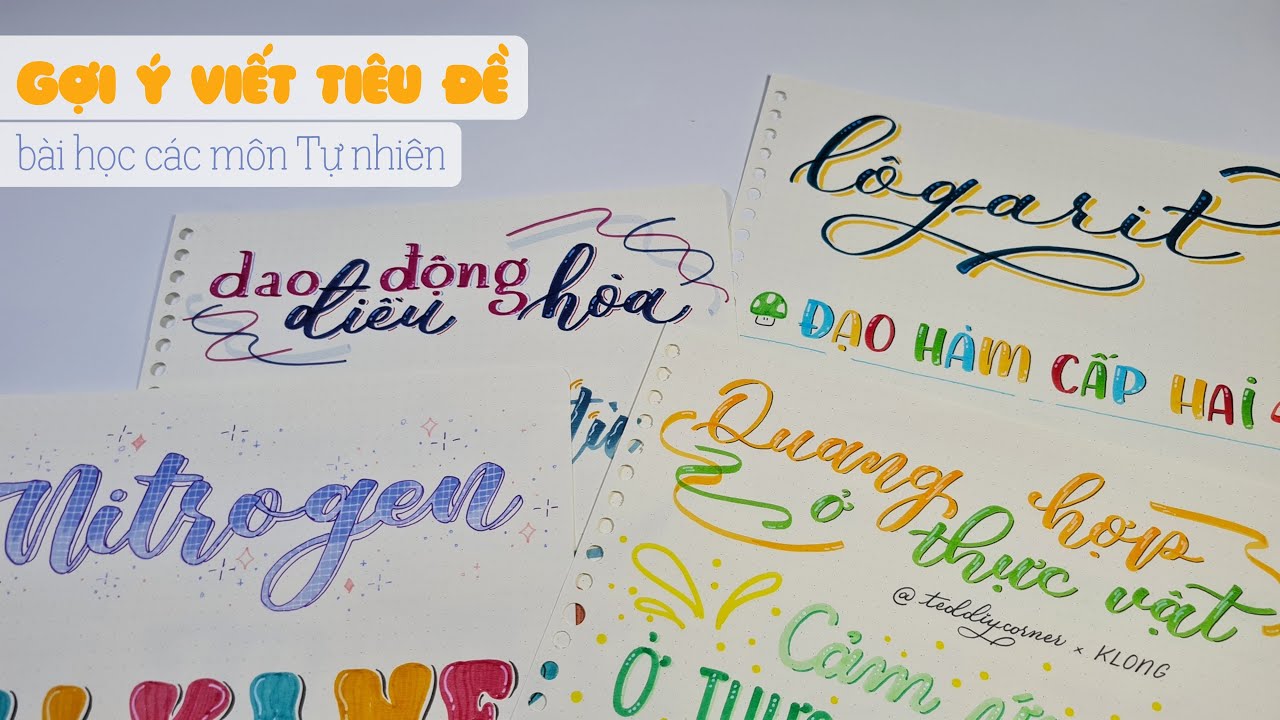 Gợi ý viết tiêu đề
bài học các môn Tự nhiên
lôgarit
ĐẠO HÀM CẤP HAI
dao động
điều hòa
Nitrogen
Quang hợp
ở thực vật
@teddiycorner x KLONG
Cảm
Ở